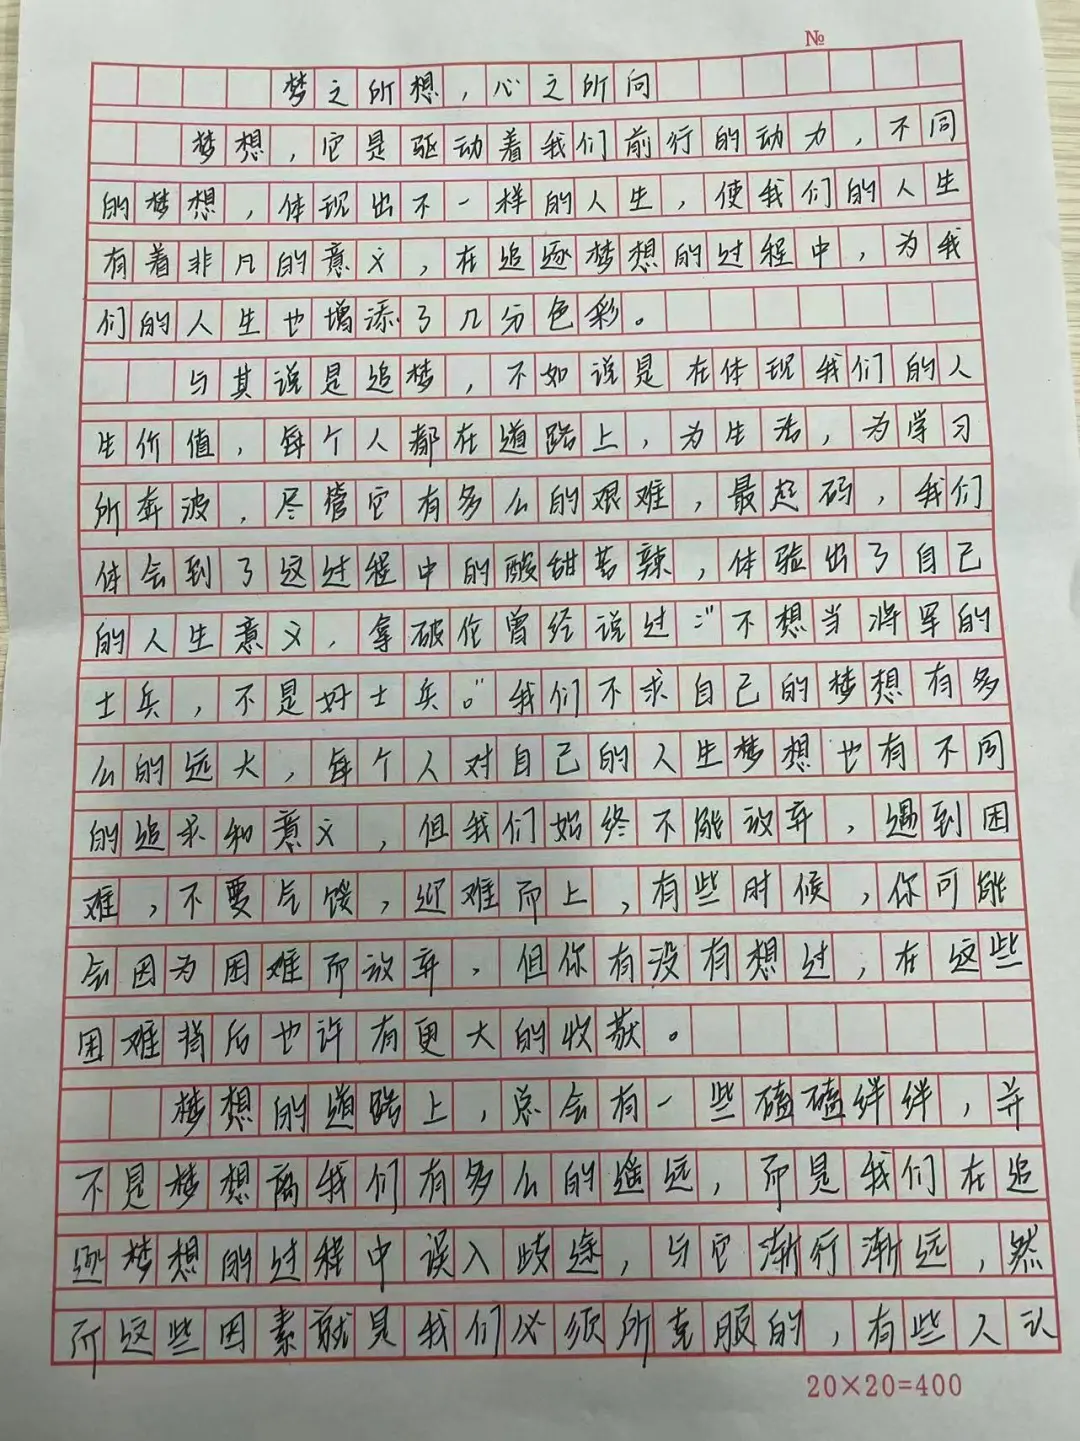 №
梦之所想，心之所向
梦想，它是驱动着我们前行的动力，不同
的梦想，体现出不一样的人生，使我们的人生
有着非凡的意义，在追逐梦想的过程中，为我
们的人生也增添了几分色彩。
与其说是追梦，不如说是在体现我们的人
生价值，每个人都在道路上，为生活，为学习
所奔波，尽管它有多么的艰难，最起码，我们
体会到了这过程中的酸甜苦辣，体验出了自己
的人生意义，拿破伦曾经说过：“不想当将军的
士兵，不是好士兵。”我们不求自己的梦想有多
么的远大，每个人对自己的人生梦想也有不同
的追求和意义，但我们始终不能放弃，遇到困
难，不要气馁，迎难而上，有些时候，你可能
会因为困难而放弃，但你有没有想过，在这些
困难背后也许有更大的收获。
梦想的道路上，总会有一些磕磕绊绊，并
不是梦想离我们有多么的遥远，而是我们在追
逐梦想的过程中误入歧途，与它渐行渐远，然
而这些因素就是我们必须所克服的，有些人认
20×20=400